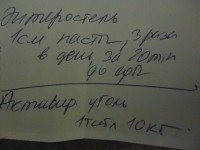 Энтеросгель
1 см пасты, 3 раза
в день за 20 min
до еды
Активир уголь
1 табл 10 кг